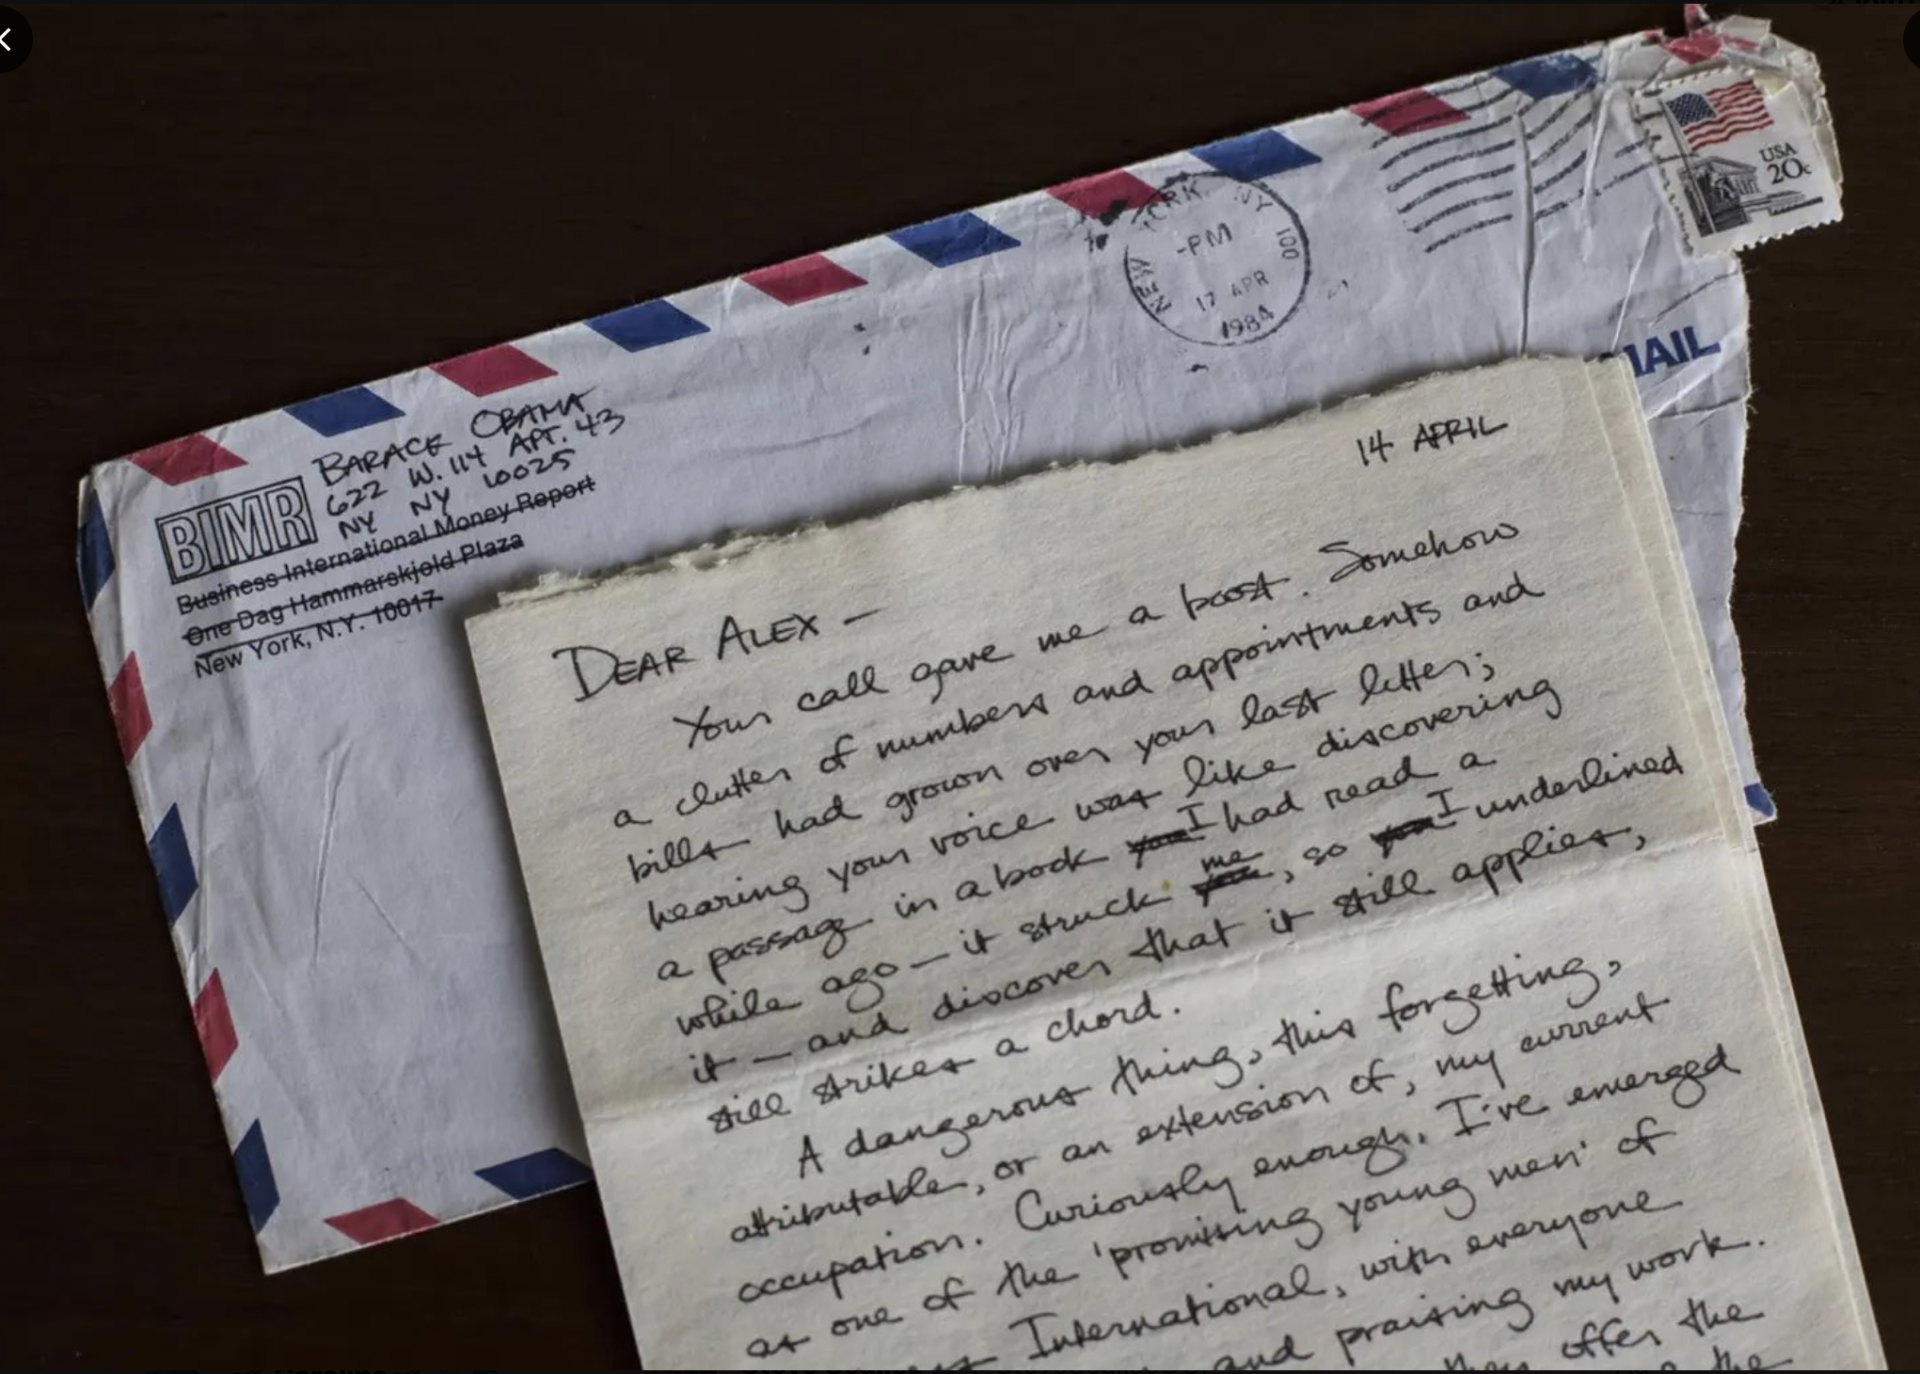 USA
20c
NEW YORK, NY 100
-PM
17 APR
1984
MAIL
BARACK OBAMA
622 W. 114 APT. 43
NY NY 10025
BIMR
Business International Money Report
One Dag Hammarskjold Plaza
New York, N.Y. 10017
14 APRIL
DEAR ALEX —
Your call gave me a boost. Somehow
a clutter of numbers and appointments and
bills had grown over your last letter;
hearing your voice was like discovering
a passage in a book you I had read a
while ago — it struck you me, so you I underlined
it — and discover that it still applies,
still strikes a chord.
A dangerous thing, this forgetting,
attributable, or an extension of, my current
occupation. Curiously enough, I've emerged
as one of the 'promising young men' of
International, with everyone
and praising my work.
they offer the
the